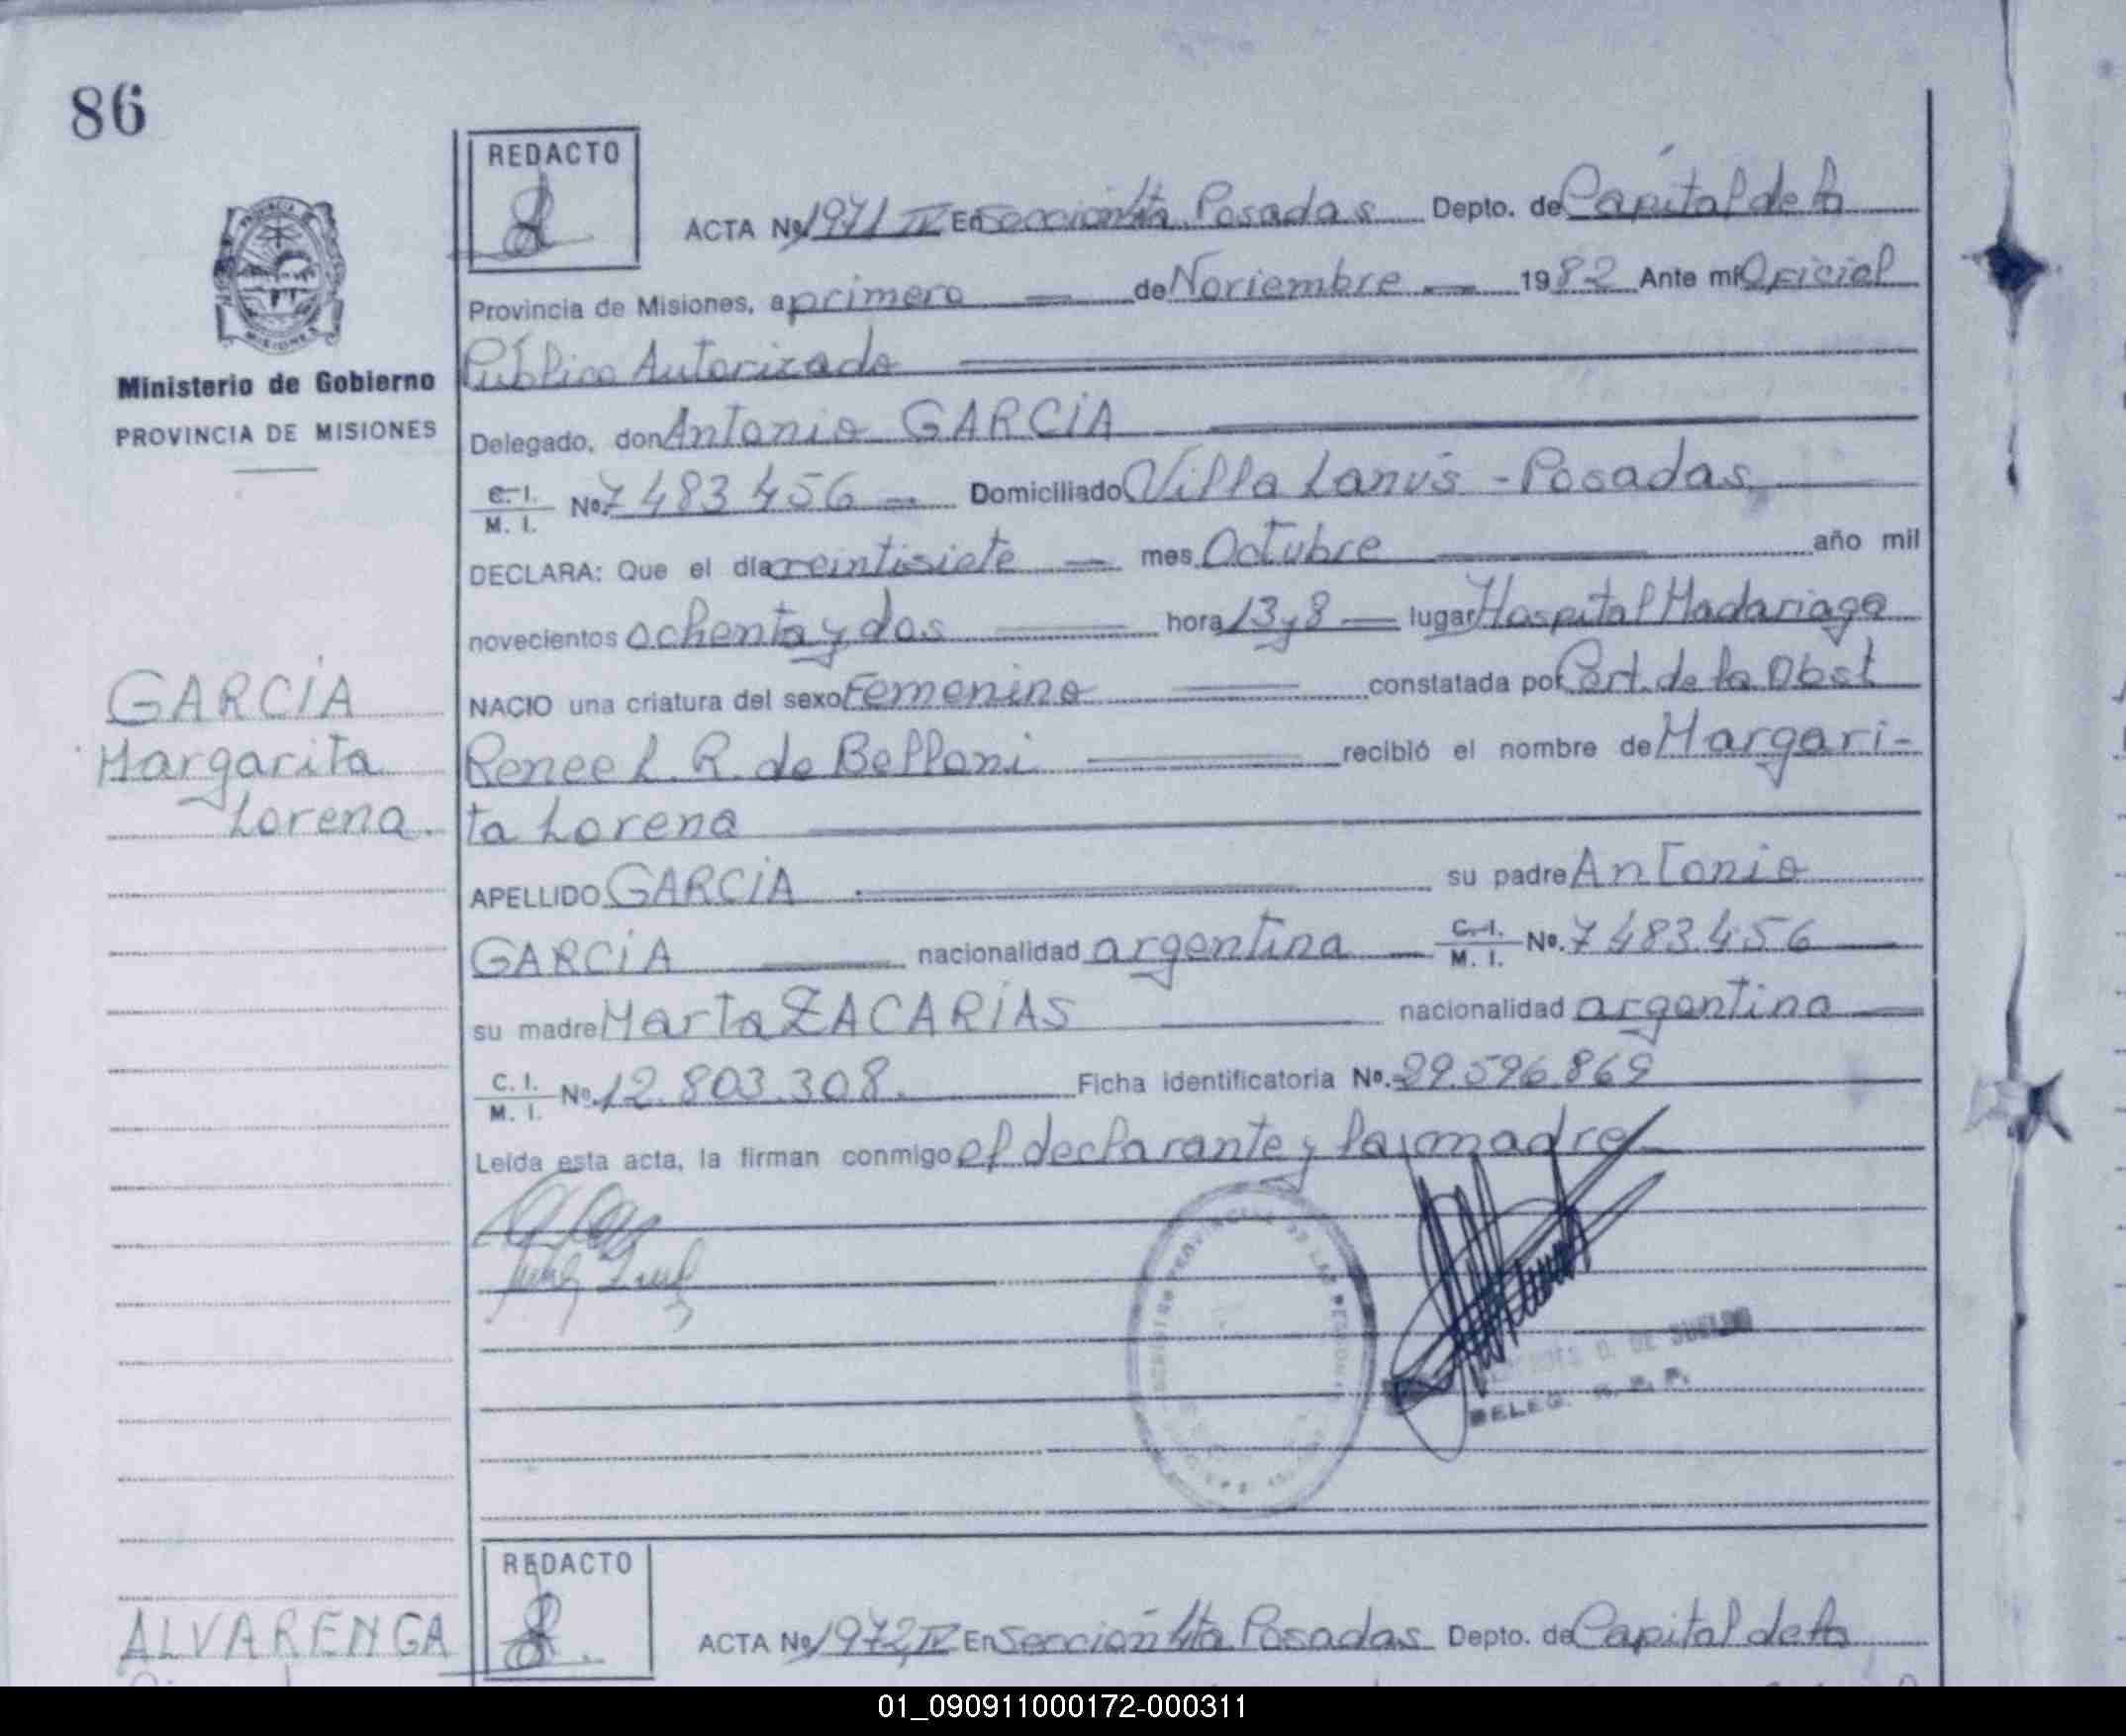 86
REDACTO
ACTA No 1971 IV En Sección 4ta Posadas Depto. de Capital de la
Provincia de Misiones, a primero de Noviembre 1982 Ante mi Oficial
Ministerio de Gobierno
Público Autorizado
PROVINCIA DE MISIONES
Delegado, don Antonio GARCIA
C. I. / M. I. No. 7483456 Domiciliado Villa Lanús - Posadas
DECLARA: Que el día veintisiete mes Octubre año mil
novecientos ochenta y dos hora 13 y 8 lugar Hospital Madariaga
GARCIA
Margarita
Lorena.
NACIO una criatura del sexo Femenino constatada por Cert. de la Obst
Renee L. R. de Belloni recibió el nombre de Margari-
ta Lorena
APELLIDO GARCIA su padre Antonio
GARCIA nacionalidad argentina C. I. / M. I. No. 7483456
su madre Marta ZACARIAS nacionalidad argentina
C. I. / M. I. No. 12.803.308. Ficha identificatoria No. 29.596.869
Leída esta acta, la firman conmigo el declarante y la madre
D. DE SUELDO
DELEG. R. P. P.
REDACTO
ALVARENGA
ACTA No 1972 IV En Sección 4ta Posadas Depto. de Capital de la
01_090911000172-000311